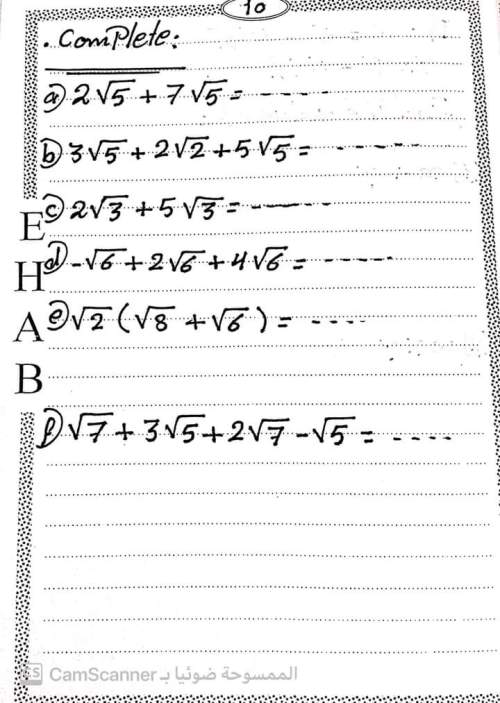 10
. Complete:
a) 2√5 + 7√5 = -----
b) 3√5 + 2√2 + 5√5 = -----
c) 2√3 + 5√3 = -----
E
d) -√6 + 2√6 + 4√6 = -----
H
e) √2 (√8 + √6) = ----
A
B
f) √7 + 3√5 + 2√7 - √5 = ----
CS CamScanner الممسوحة ضوئيا بـ